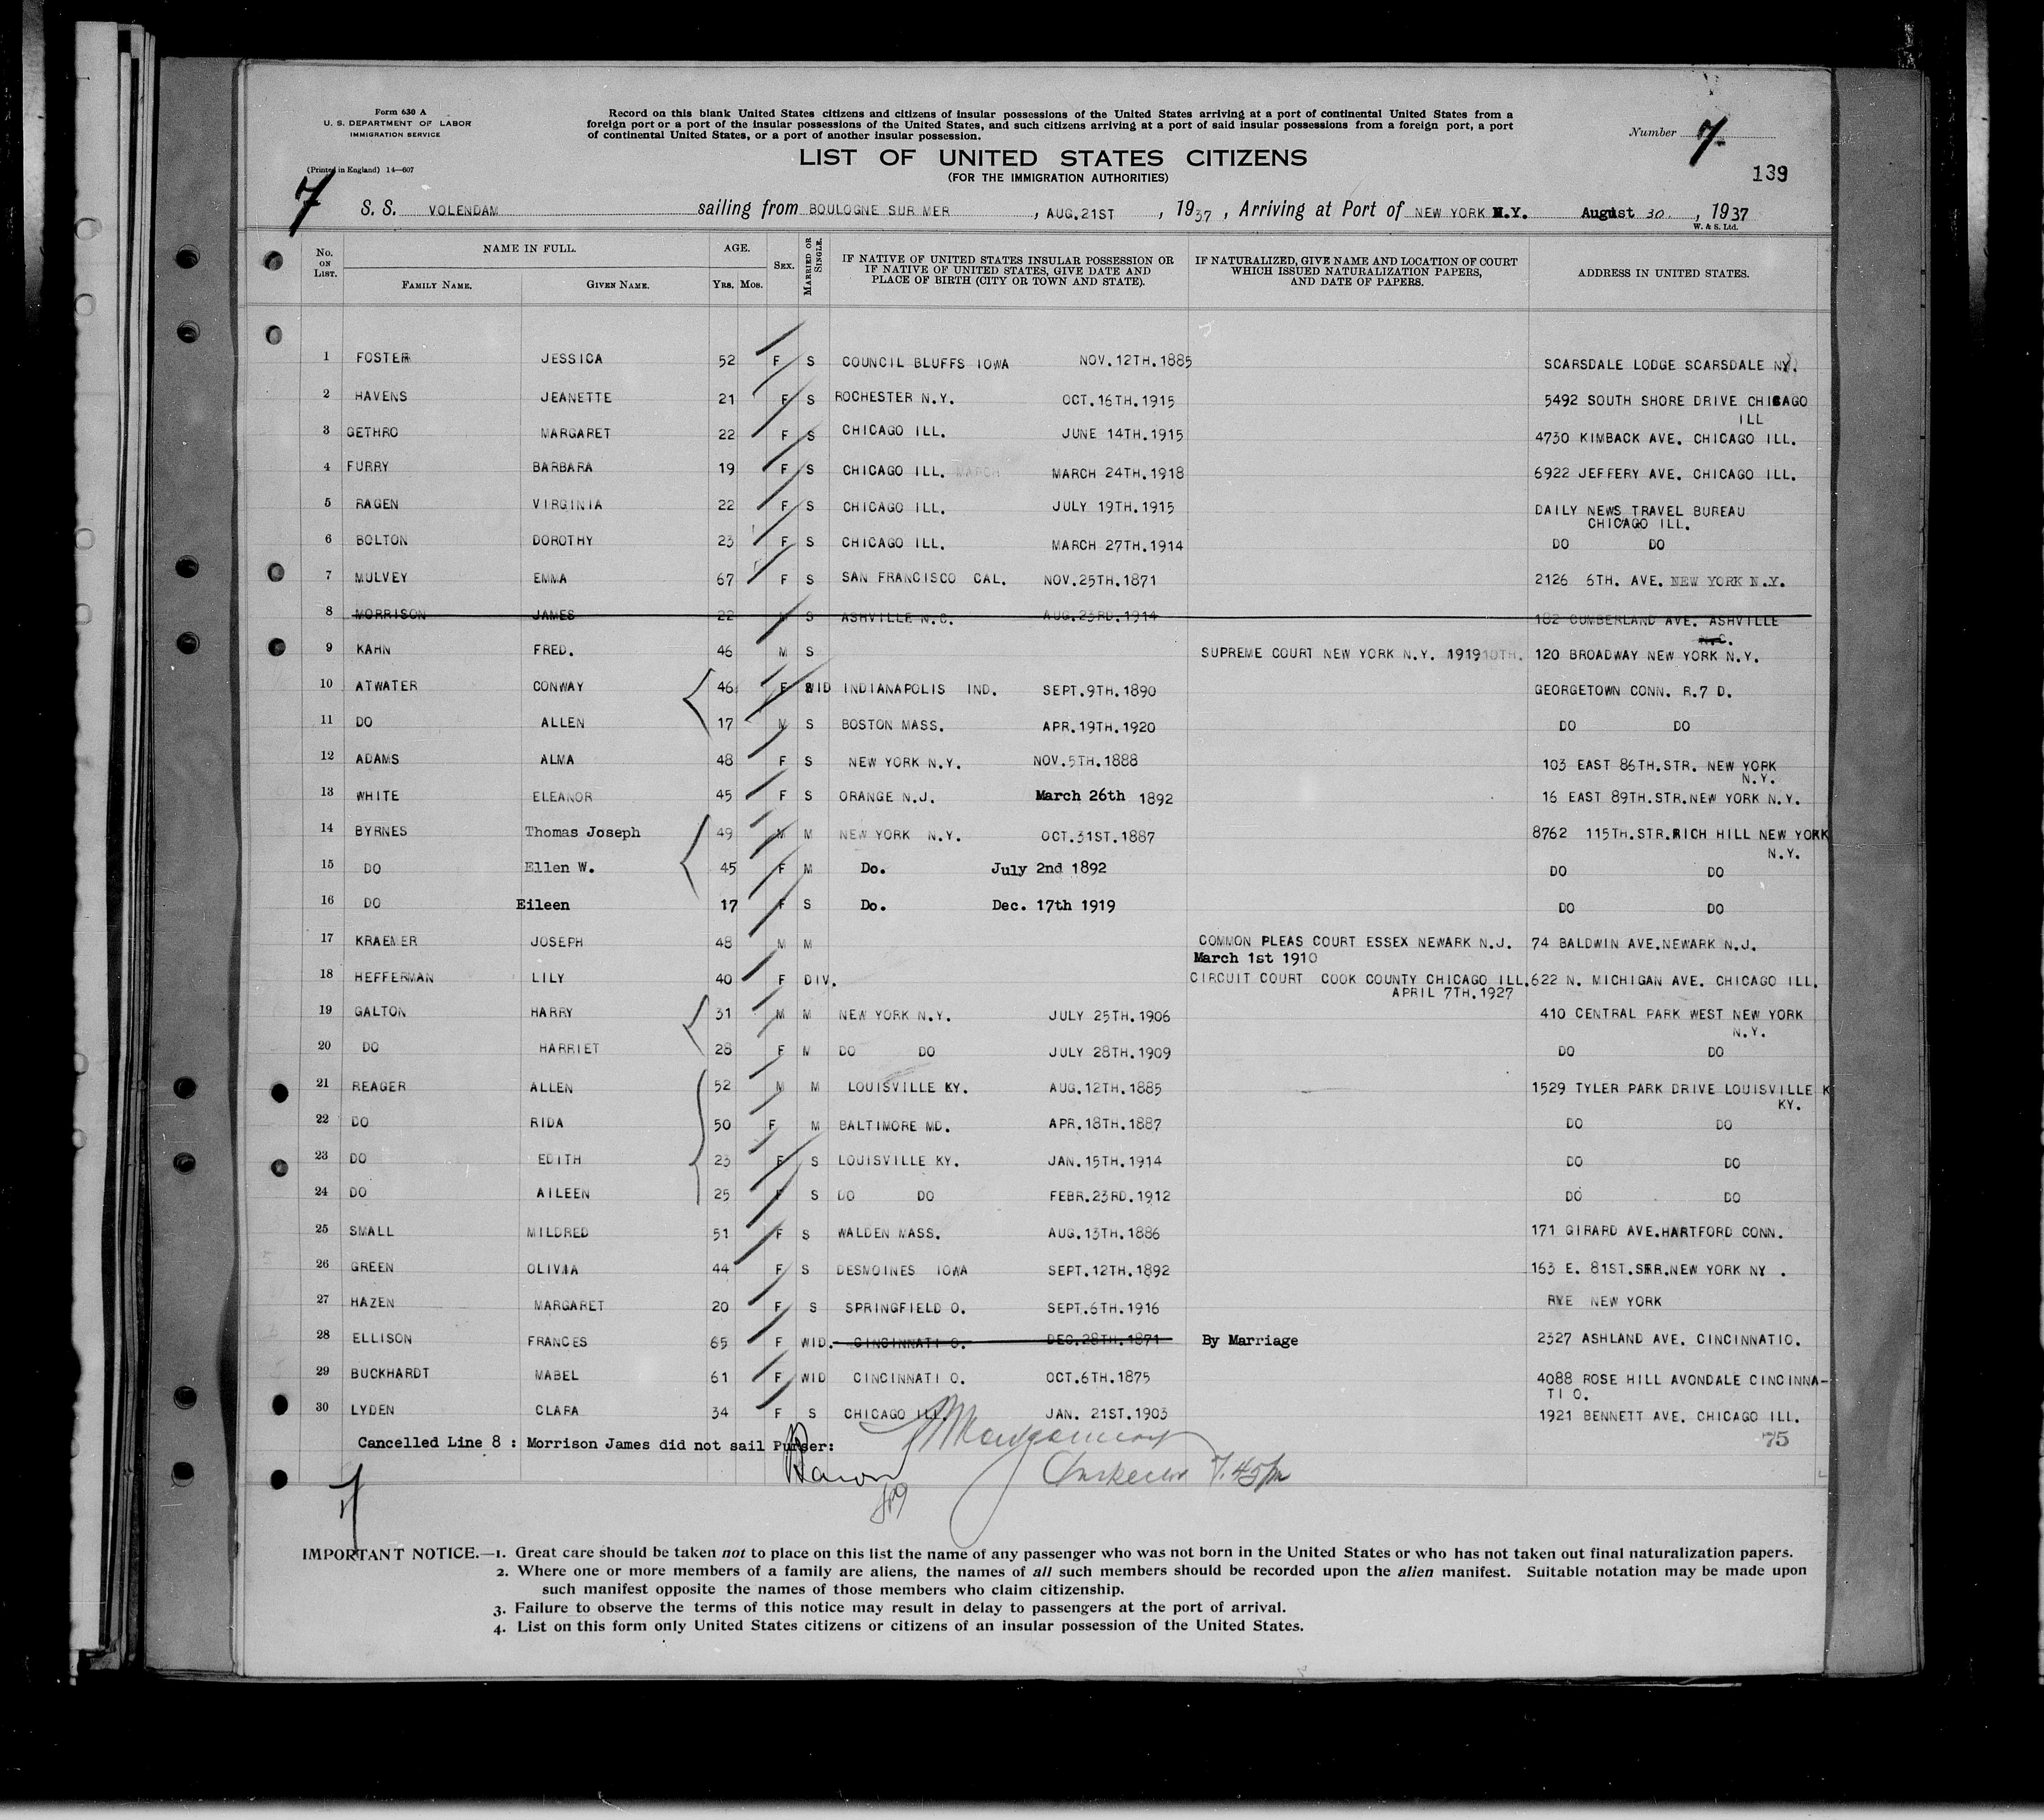 Form 630 A
U. S. DEPARTMENT OF LABOR
IMMIGRATION SERVICE
(Printed in England) 14—607
Record on this blank United States citizens and citizens of insular possessions of the United States arriving at a port of continental United States from a
foreign port or a port of the insular possessions of the United States, and such citizens arriving at a port of said insular possessions from a foreign port, a port
of continental United States, or a port of another insular possession.
Number 7
LIST OF UNITED STATES CITIZENS
(FOR THE IMMIGRATION AUTHORITIES)
139
7 S. S. VOLENDAM sailing from BOULOGNE SUR MER, AUG.21ST, 1937, Arriving at Port of NEW YORK N.Y. August 30., 1937
W. & S. Ltd.
No. ON LIST. NAME IN FULL. FAMILY NAME. GIVEN NAME. AGE. YRS. MOS. SEX. MARRIED OR SINGLE. IF NATIVE OF UNITED STATES INSULAR POSSESSION OR IF NATIVE OF UNITED STATES, GIVE DATE AND PLACE OF BIRTH (CITY OR TOWN AND STATE). IF NATURALIZED, GIVE NAME AND LOCATION OF COURT WHICH ISSUED NATURALIZATION PAPERS, AND DATE OF PAPERS. ADDRESS IN UNITED STATES.
1 FOSTER JESSICA 52 F S COUNCIL BLUFFS IOWA NOV.12TH.1885 SCARSDALE LODGE SCARSDALE NY.
2 HAVENS JEANETTE 21 F S ROCHESTER N.Y. OCT.16TH.1915 5492 SOUTH SHORE DRIVE CHICAGO
ILL
3 GETHRO MARGARET 22 F S CHICAGO ILL. JUNE 14TH.1915 4730 KIMBACK AVE. CHICAGO ILL.
4 FURRY BARBARA 19 F S CHICAGO ILL. MARCH MARCH 24TH.1918 6922 JEFFERY AVE. CHICAGO ILL.
5 RAGEN VIRGINIA 22 F S CHICAGO ILL. JULY 19TH.1915 DAILY NEWS TRAVEL BUREAU
CHICAGO ILL.
6 BOLTON DOROTHY 23 F S CHICAGO ILL. MARCH 27TH.1914 DO DO
7 MULVEY EMMA 67 F S SAN FRANCISCO CAL. NOV.25TH.1871 2126 6TH. AVE. NEW YORK N.Y.
8 MORRISON JAMES 22 M S ASHVILLE N.C. AUG.23RD.1914 182 CUMBERLAND AVE. ASHVILLE
N.C.
9 KAHN FRED. 46 M S SUPREME COURT NEW YORK N.Y. 1919 10TH. 120 BROADWAY NEW YORK N.Y.
10 ATWATER CONWAY 46 F WID INDIANAPOLIS IND. SEPT.9TH.1890 GEORGETOWN CONN. R.7 D.
11 DO ALLEN 17 M S BOSTON MASS. APR.19TH.1920 DO DO
12 ADAMS ALMA 48 F S NEW YORK N.Y. NOV.5TH.1888 103 EAST 86TH.STR. NEW YORK
N.Y.
13 WHITE ELEANOR 45 F S ORANGE N.J. March 26th 1892 16 EAST 89TH.STR.NEW YORK N.Y.
14 BYRNES Thomas Joseph 49 M M NEW YORK N.Y. OCT.31ST.1887 8762 115TH.STR.RICH HILL NEW YORK
N.Y.
15 DO Ellen W. 45 F M Do. July 2nd 1892 DO DO
16 DO Eileen 17 F S Do. Dec. 17th 1919 DO DO
17 KRAEMER JOSEPH 48 M M COMMON PLEAS COURT ESSEX NEWARK N.J. 74 BALDWIN AVE.NEWARK N.J.
March 1st 1910
18 HEFFERMAN LILY 40 F DIV. CIRCUIT COURT COOK COUNTY CHICAGO ILL. 622 N. MICHIGAN AVE. CHICAGO ILL.
APRIL 7TH.1927
19 GALTON HARRY 31 M M NEW YORK N.Y. JULY 25TH.1906 410 CENTRAL PARK WEST NEW YORK
N.Y.
20 DO HARRIET 28 F M DO DO JULY 28TH.1909 DO DO
21 REAGER ALLEN 52 M M LOUISVILLE KY. AUG.12TH.1885 1529 TYLER PARK DRIVE LOUISVILLE K
KY.
22 DO RIDA 50 F M BALTIMORE MD. APR.18TH.1887 DO DO
23 DO EDITH 23 F S LOUISVILLE KY. JAN.15TH.1914 DO DO
24 DO AILEEN 25 F S DO DO FEBR.23RD.1912 DO DO
25 SMALL MILDRED 51 F S WALDEN MASS. AUG.13TH.1886 171 GIRARD AVE.HARTFORD CONN.
26 GREEN OLIVIA 44 F S DESMOINES IOWA SEPT.12TH.1892 163 E. 81ST.STR.NEW YORK NY .
27 HAZEN MARGARET 20 F S SPRINGFIELD O. SEPT.6TH.1916 RYE NEW YORK
28 ELLISON FRANCES 65 F WID. CINCINNATI O. DEC.28TH.1871 By Marriage 2327 ASHLAND AVE. CINCINNATIO.
29 BUCKHARDT MABEL 61 F WID CINCINNATI O. OCT.6TH.1875 4088 ROSE HILL AVONDALE CINCINNA-
TI O.
30 LYDEN CLARA 34 F S CHICAGO ILL. JAN. 21ST.1903 1921 BENNETT AVE. CHICAGO ILL.
Cancelled Line 8 : Morrison James did not sail Purser:
75
Inspector 7.45 pm
7
IMPORTANT NOTICE.—1. Great care should be taken not to place on this list the name of any passenger who was not born in the United States or who has not taken out final naturalization papers.
2. Where one or more members of a family are aliens, the names of all such members should be recorded upon the alien manifest. Suitable notation may be made upon
such manifest opposite the names of those members who claim citizenship.
3. Failure to observe the terms of this notice may result in delay to passengers at the port of arrival.
4. List on this form only United States citizens or citizens of an insular possession of the United States.